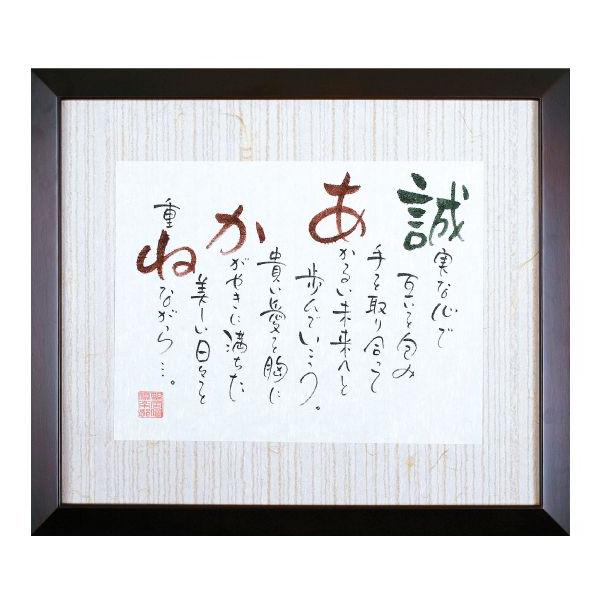 誠実な心で
互いを包み
手を取り合って
あかるい未来へと
歩んでいこう。
貴い愛を胸に
かがやきに満ちた
美しい日々を
重ねながら…。